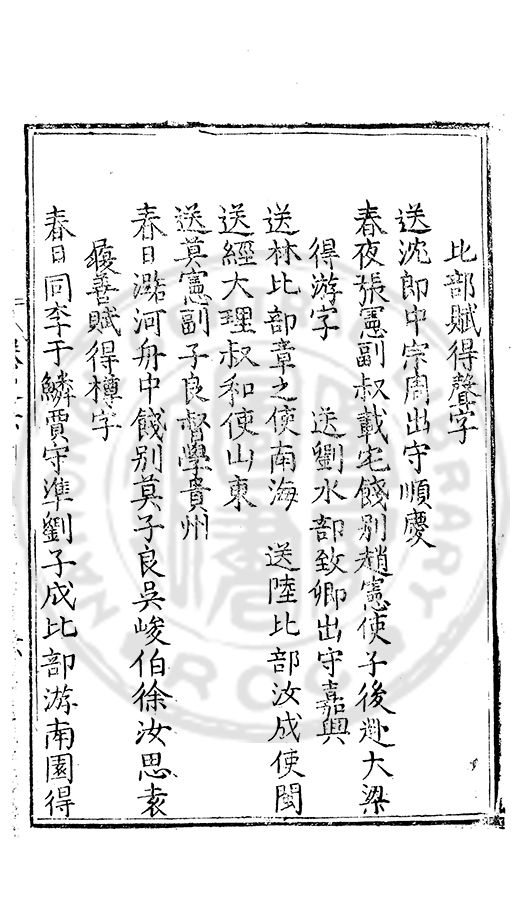 比部賦得聲字
送沈郎中宗周出守順慶
春夜張憲副叔載宅餞别趙憲使子後赴大梁
得游字　送劉水部致卿出守嘉興
送林比部章之使南海　送陸比部汝成使閩
送經大理叔和使山東
送莫憲副子良督學貴州
春日潞河舟中餞别莫子良吳峻伯徐汝思袁
履善賦得樽字
春日同李于鱗賈守準劉子成比部游南園得